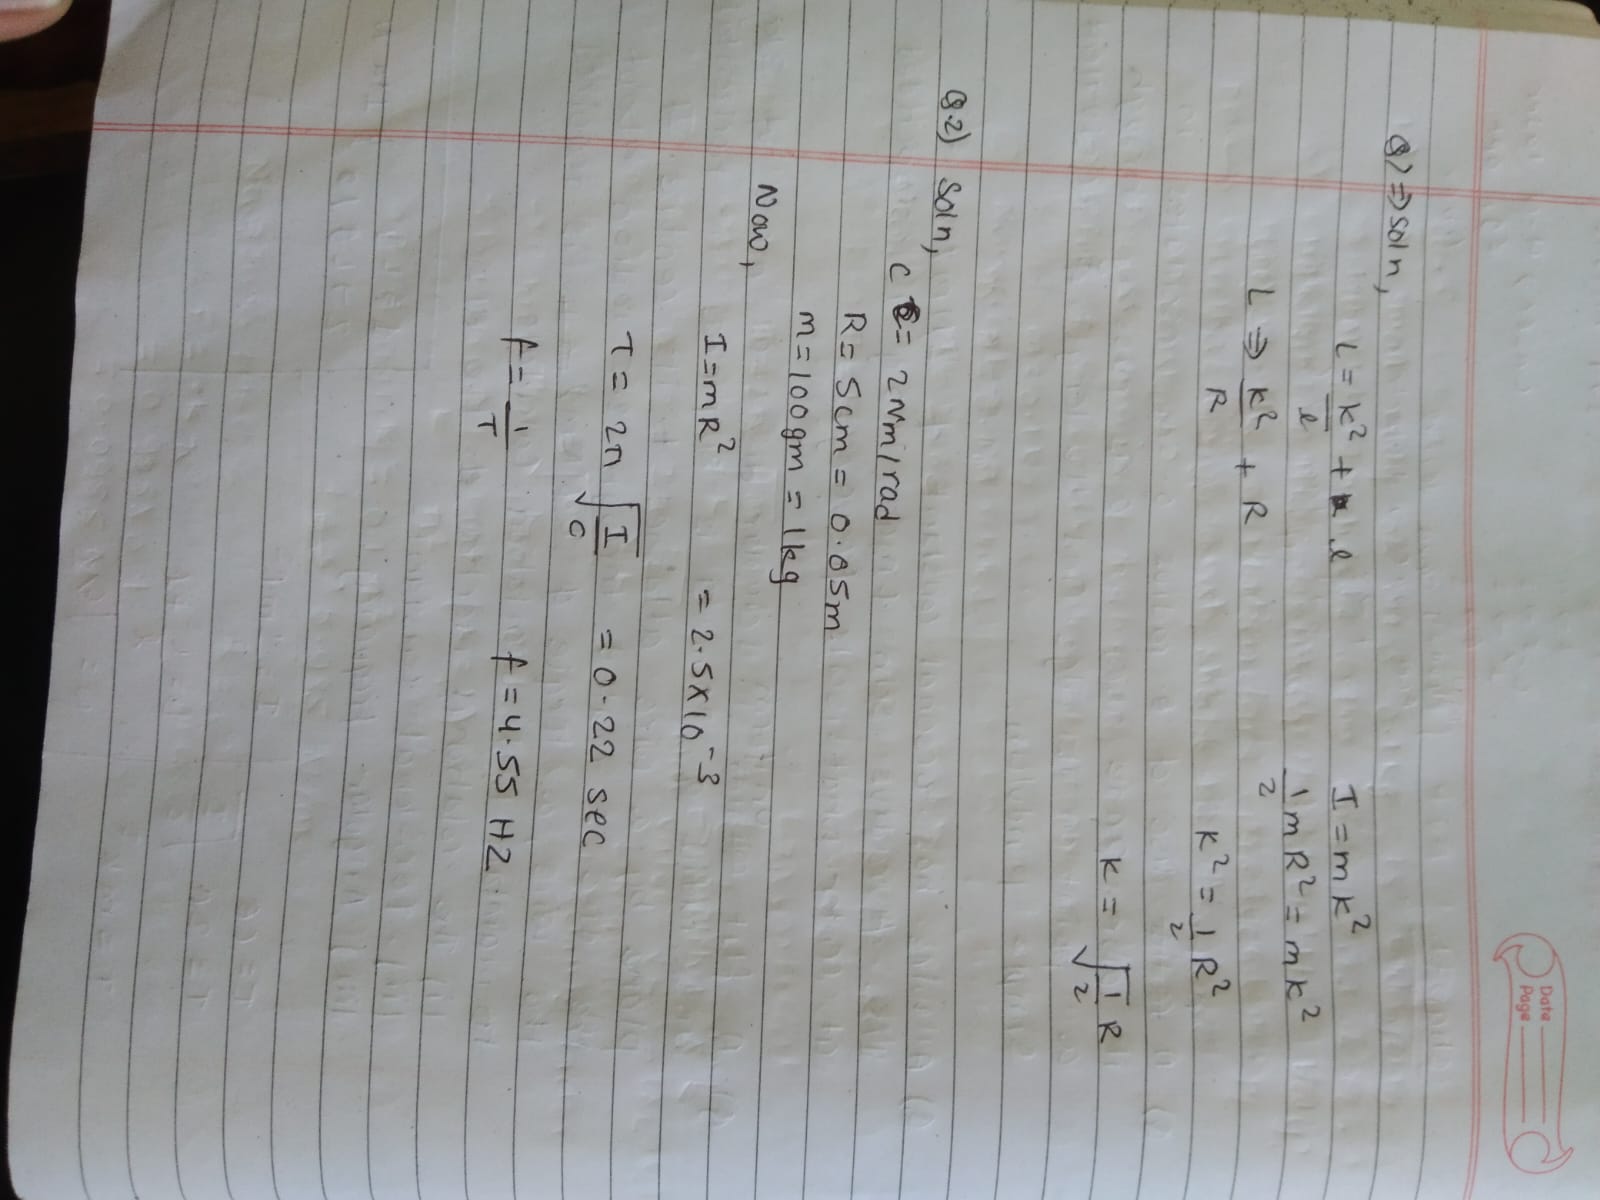 Date
Page
Q) ⇒ soln,
L = k²/l + l
I = mk²
L ⇒ k²/R + R
1/2 mR² = mk²
k² = 1/2 R²
k = √(1/2) R
Q.2) Soln,
C = 2Nm/rad
R = 5cm = 0.05m
m = 100gm = 1kg
Now,
I = mR² = 2.5×10⁻³
T = 2π √(I/C) = 0.22 sec
f = 1/T f = 4.55 HZ